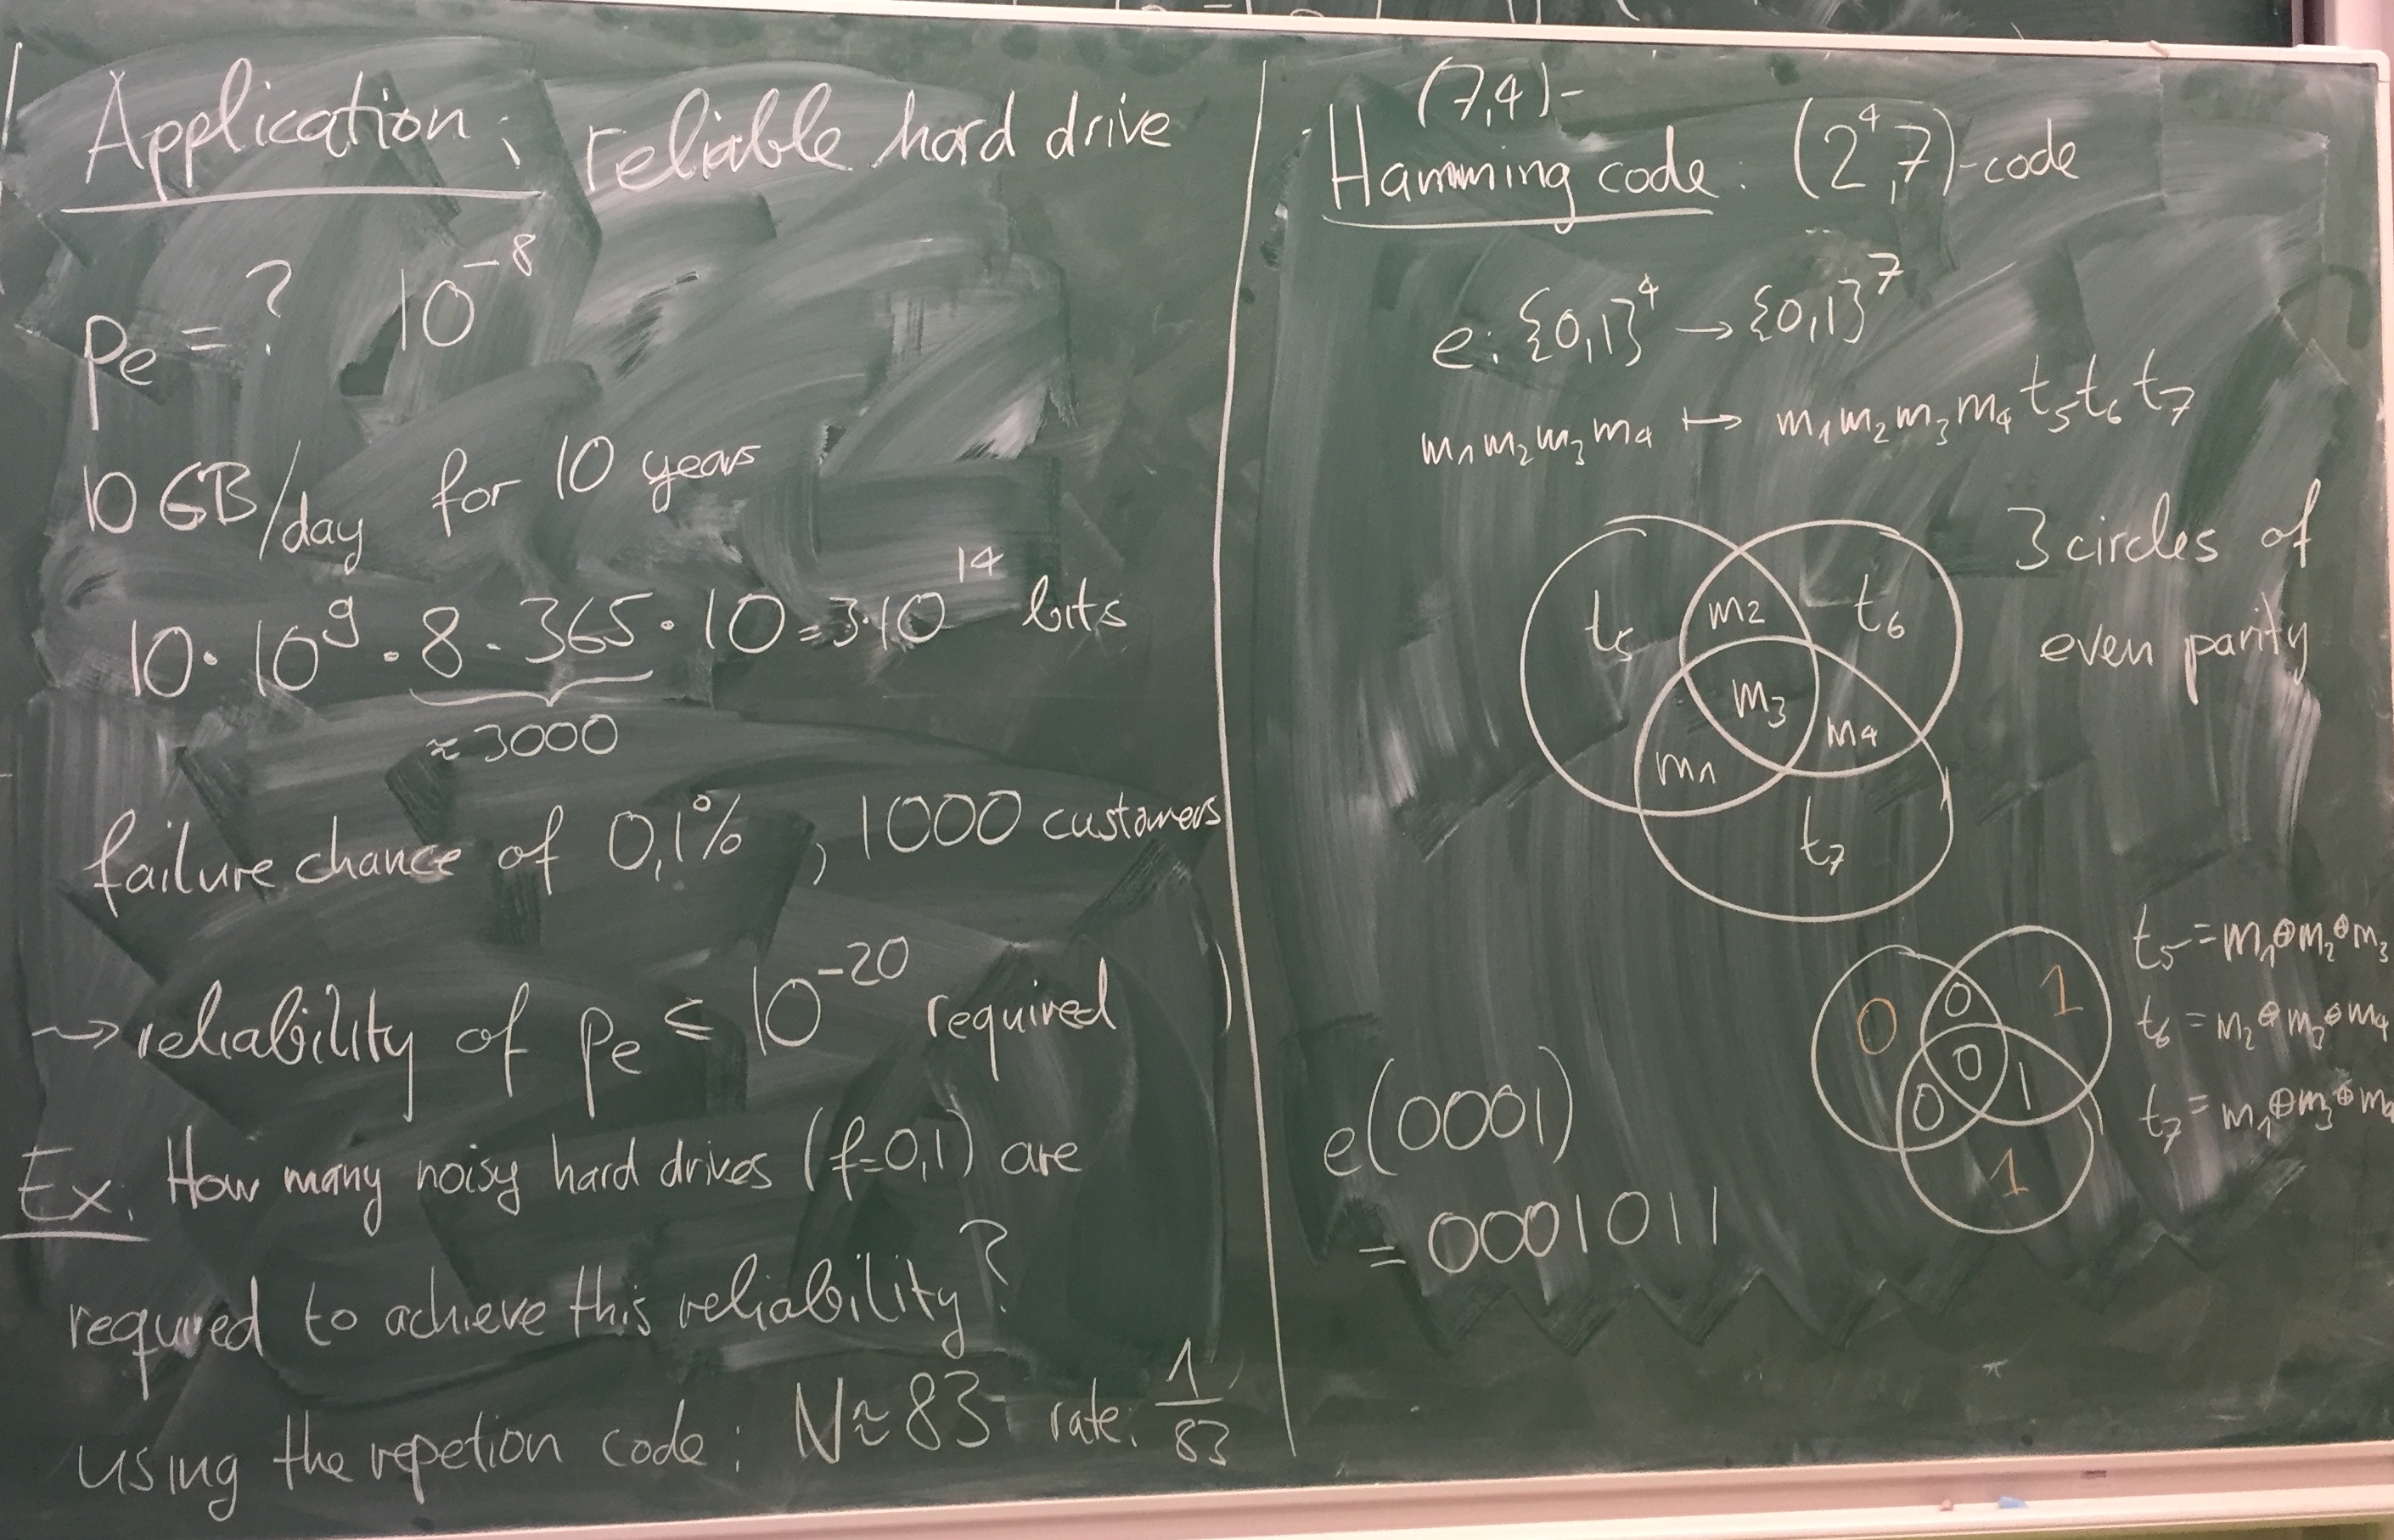 Application: reliable hard drive
pe = ? 10^-8
10 GB/day for 10 years
10 · 10^9 · 8 · 365 · 10 = 3·10^14 bits
≈ 3000
failure chance of 0,1% , 1000 customers
⇝ reliability of pe ≤ 10^-20 required
Ex. How many noisy hard drives (f=0,1) are
required to achieve this reliability?
using the repetion code: N ≈ 83 rate: 1/83
(7,4)-
Hamming code: (2^4,7)-code
e: {0,1}^4 → {0,1}^7
m1 m2 m3 m4 ↦ m1 m2 m3 m4 t5 t6 t7
3 circles of
even parity
t5 m2 t6
m3
m1 m4
t7
t5 = m1 ⊕ m2 ⊕ m3
t6 = m2 ⊕ m3 ⊕ m4
t7 = m1 ⊕ m3 ⊕ m4
0 0 1
0
0 1
1
e(0001)
= 0001011